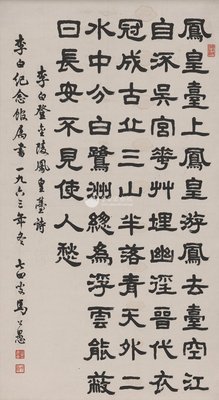 鳳皇臺上鳳皇游鳳去臺空江
自流吳宮華艸埋幽徑晉代衣
冠成古丘三山半落青天外二
水中分白鷺洲總為浮雲能蔽
日長安不見使人愁
李白登金陵鳳皇臺詩
李白紀念館属書一九六三年冬 七四叟馬公愚